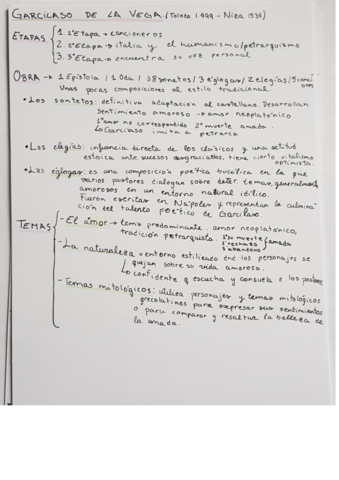 GARCILASO DE LA VEGA (Toledo 1499 - Niza 1536)
ETAPAS
1. 1ª Etapa → cancioneros
2. 2ª Etapa → italia y el humanismo/petrarquismo
3. 3ª Etapa → encuentra su voz personal
OBRA → 1 Epístola / 1 Oda / 38 sonetos / 3 eglogas / 2 elegías / 5 canciones
Unas pocas composiciones al estilo tradicional.
• Los sontetos: definitiva adaptación al castellano. Desarrollan
sentimiento amoroso → amor neoplatónico
1º amor no correspondido 2º muerte amada.
↳ Garcilaso imita a petrarca
• Las elegías: influencia directa de los clásicos y una actitud
estoica ante sucesos desgraciados, tiene cierto vitalismo
optimista.
• Las eglogas: es una composición poética bucólica en la que
varios pastores dialogan sobre deter. temas, generalmente
amorosos en un entorno natural idílico.
Fueron escritas en Nápoles y representan la culmina
ción del talento poético de Garcilaso.
TEMAS
- El amor → tema predominante. amor neoplatónico,
tradición petrarquista
muerte amada
rechazo
abandono
- La naturaleza → entorno estilizado dnd los personajes se
quejan sobre su vida amorosa.
↳ confidente q escucha y consuela a los pastores
- Temas mitológicos: utiliza personajes y temas mitológicos
grecolatinos para expresar sus sentimientos
o para comparar y resaltar la belleza de
la amada.